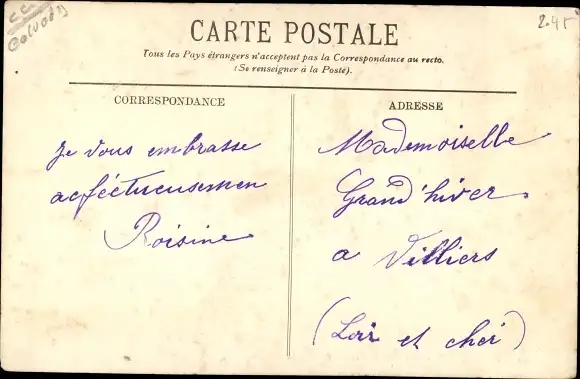 Calvados
2.45
CARTE POSTALE
Tous les Pays étrangers n'acceptent pas la Correspondance au recto.
(Se renseigner à la Poste).
CORRESPONDANCE
ADRESSE
Je vous embrasse
acféctueusemen
Roisine
Mademoiselle
Grand'hiver
a Villiers
(Loir et cher)